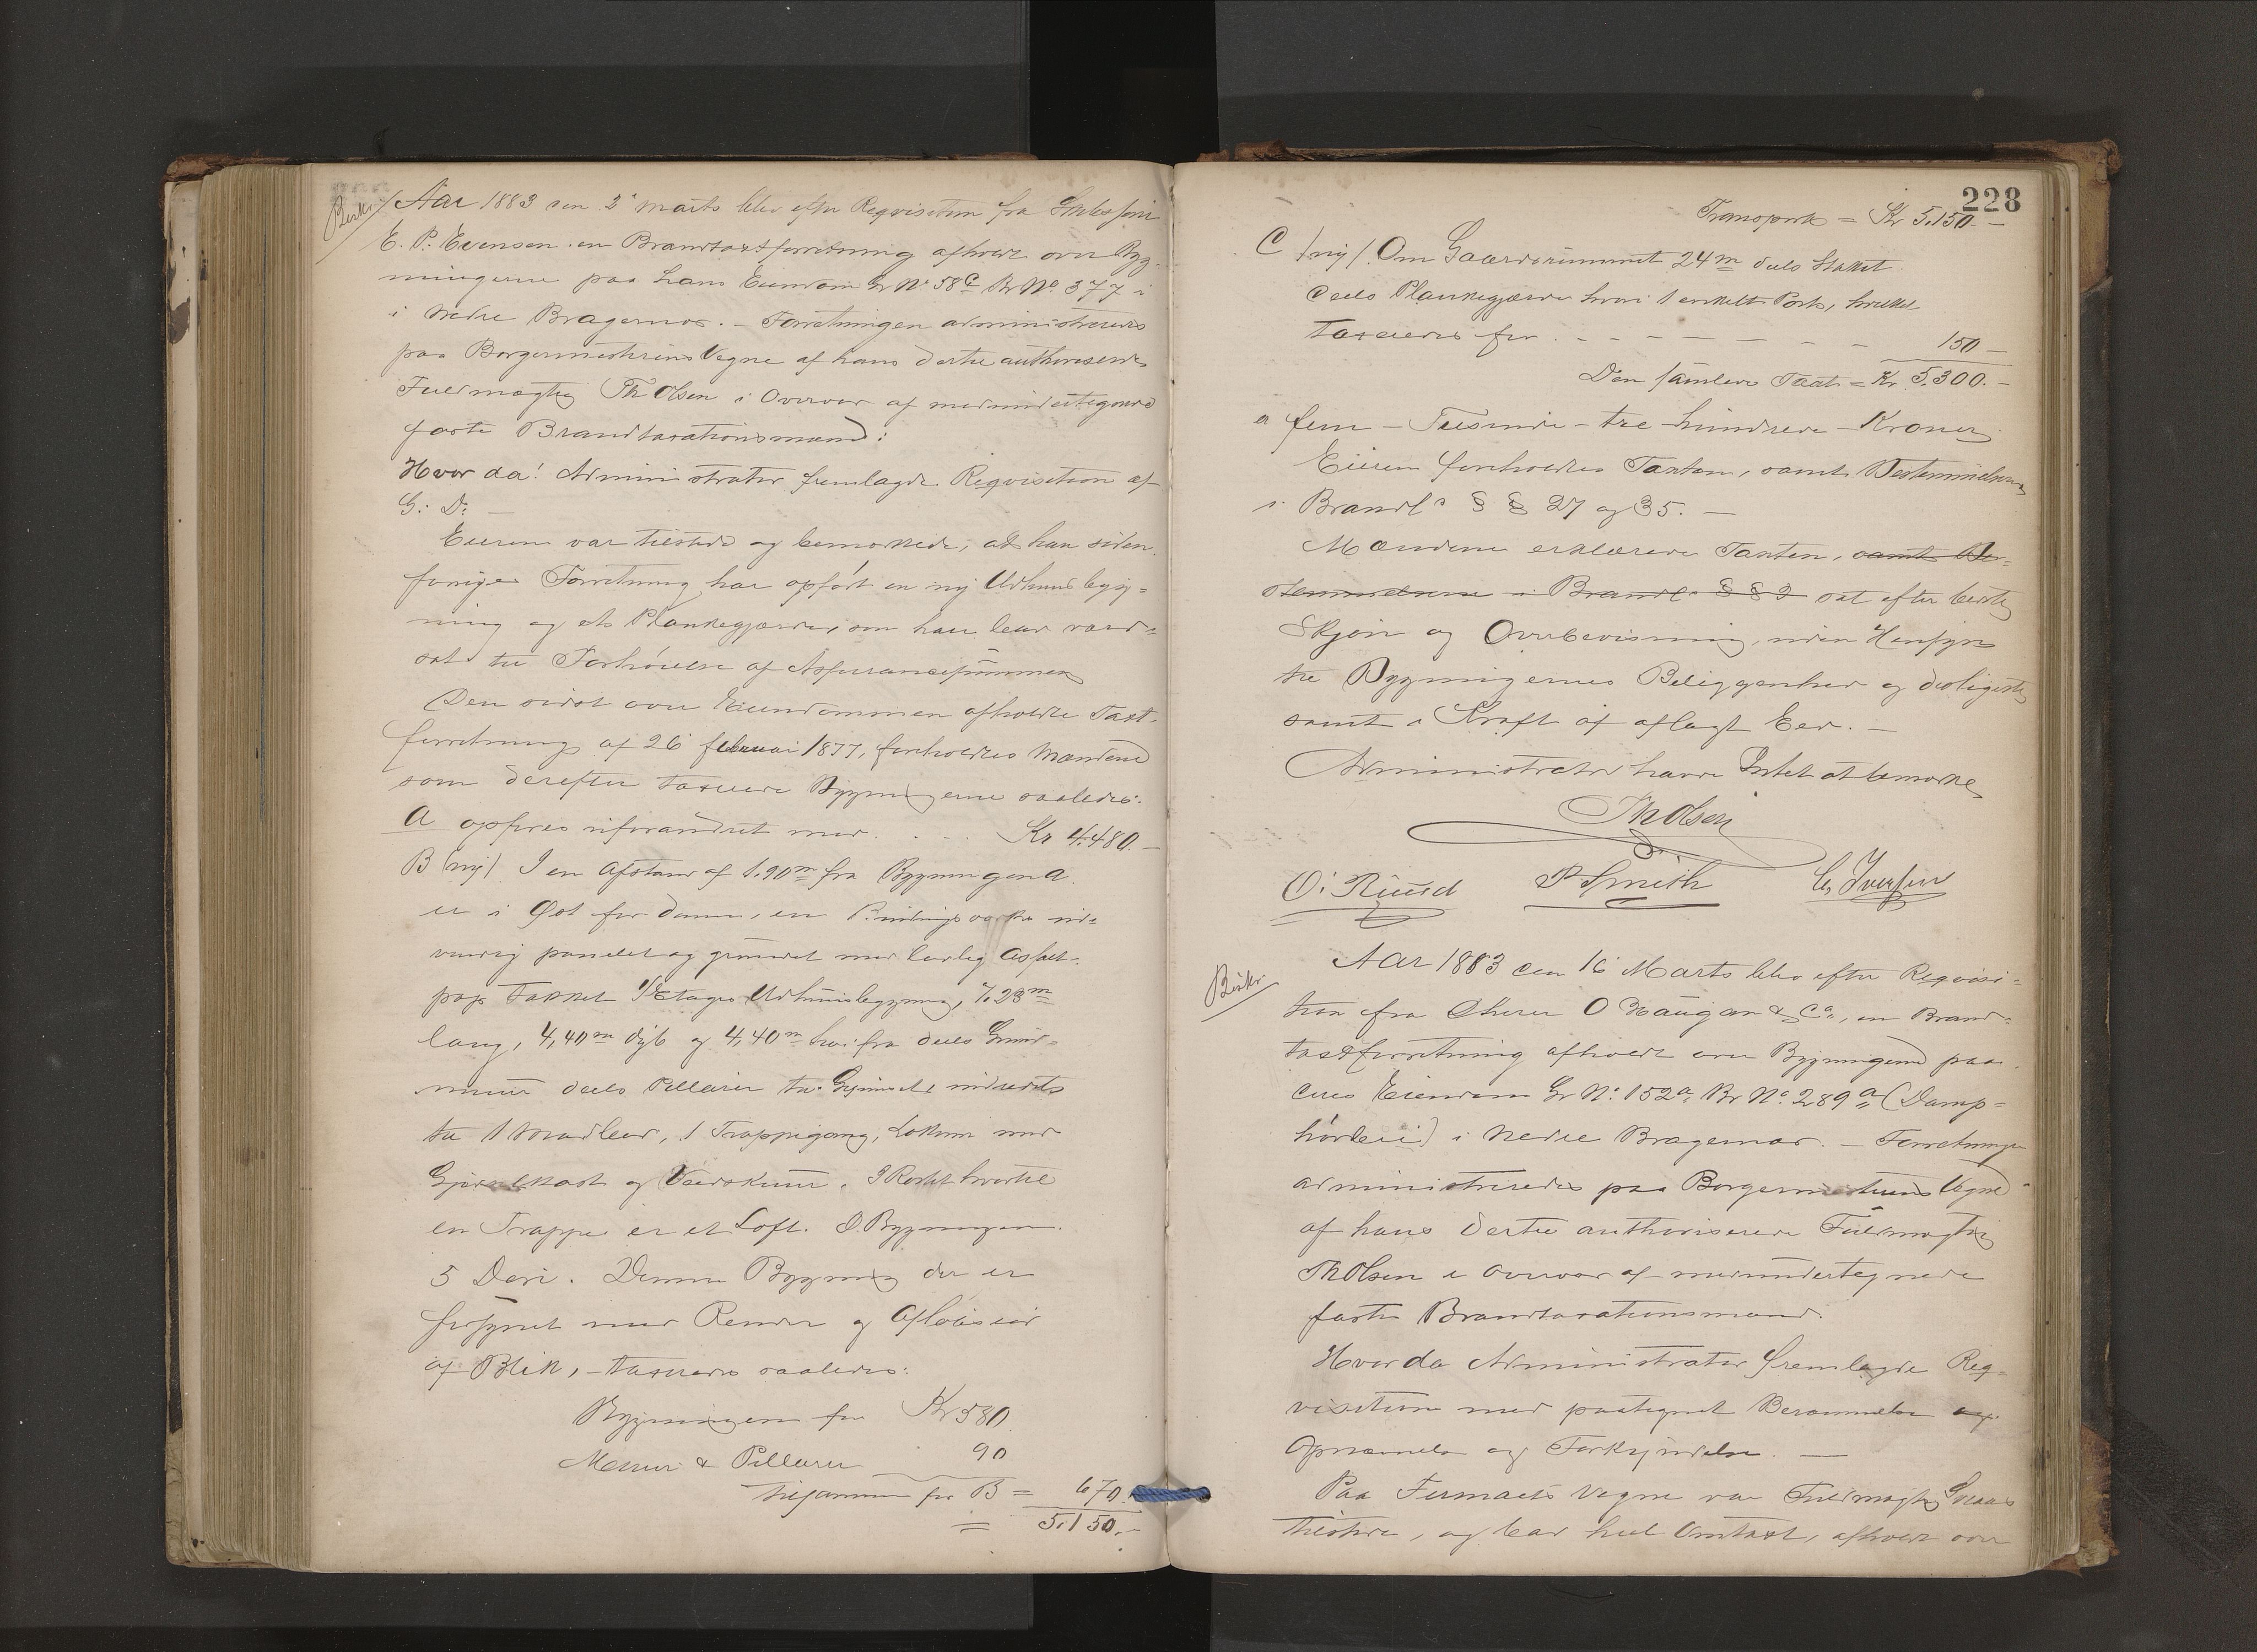 Birks.
Aar 1883 den 2' Marts blev efter Reqvisition fra
E. P. Evensen en Brandtaxtforretning afholdt over Byg-
ningerne paa hans Eiendom Gr No 58c Br No 377 i
i Nedre Bragernæs. – Forretningen administreredes
paa Borgermesterens Vegne af hans dertil authoriserede
Fuldmægtig Th Olsen i Overvær af medundertegnede
faste Brandtaxationsmænd:
Hvor da! Administrator fremlagde Reqvisition af
G: D: –
Eieren var tilstede og bemærkede, at han siden
forrige Forretning har opført en ny Udhuusbyg=
ning og et Plankegjærde, som han bad værd=
sat til Forhøielse af Assurancesummen
Den sidst over Eiendommen afholdte Taxt-
forretning af 26 februar 1877, foreholdtes Mændene
som derefter taxerede Bygningerne saaledes:
A opføres uforandret med . . - Kr 4.480.–
B (ny) I en Afstand af 1.90m fra Bygningen A.
er i Øst for denne, en Bindingsværks ud=
vendig panelet og grundet med lovlig Asfalt-
pap tækket Etages Udhuusbygning, 7.23m
lang, 4,40m dyb og 4,40m høi fra deels Grund=
muur deels Pillarer til Gesimset, indredet
til 1 Madbod, 1 Trappegang, Lokum med
og Vedskuur. 3 Rostet hvortil
en Trappe er et Loft. I Bygningen
5 Døre. Denne Bygning der er
forsynet med Render og Afløbsrør
af Blik, – taxeredes saaledes:
Bygningen for Kr 580.
Muur & Pillarer 90
tilsammen for B = 670.
= 5.150.–
228
Transport = Kr 5.150.–
C (ny) Om Gaardsrummet 24m deels Staket
deels Plankegjærde hvori 1 enkelt Port, hvilket
taxeredes for . - - - - - - - 150 –
Den samlede Taxt = Kr 5.300.–
er fem – Tusinde – tre – hundrede – Kroner
Eieren foreholdtes Taxten, samt Bestemmelserne
i Brandl§ § § 27 og 35. –
Mændene erklærede Taxten, samt Be=
stemmelserne i Brandl§ § § 2 sat efter bedste
Skjøn og Overbevisning, uden Hensyn
til Bygningernes Beliggenhed og
samt i Kraft af aflagt Eed. –
Administrator havde Intet at bemærke
Th Olsen
O. Ruud P Smith C. Iversen
Birks.
Aar 1883 den 16 Marts blev efter Reqvisi=
tion fra Dherrer O Haugan & Co, en Brand=
taxtforretning afholdt over Bygningerne paa
deres Eiendom Gr No 152a Br No 289a (Damp=
høvleri) i Nedre Bragernæs. – Forretningen
administreredes paa Borgermesterens Vegne
af hans dertil authoriserede Fuldmægtig
Th Olsen i Overvær af medundertegnede
faste Brandtaxationsmænd.
Hvor da Administrator fremlagde Req-
visition med paategnet Berammelse og
Opnævnelse og Forkyndelse. –
Paa Firmaets Vegne var Fuldmægtig
tilstede, og bad hiil Omtaxt, afholdt over